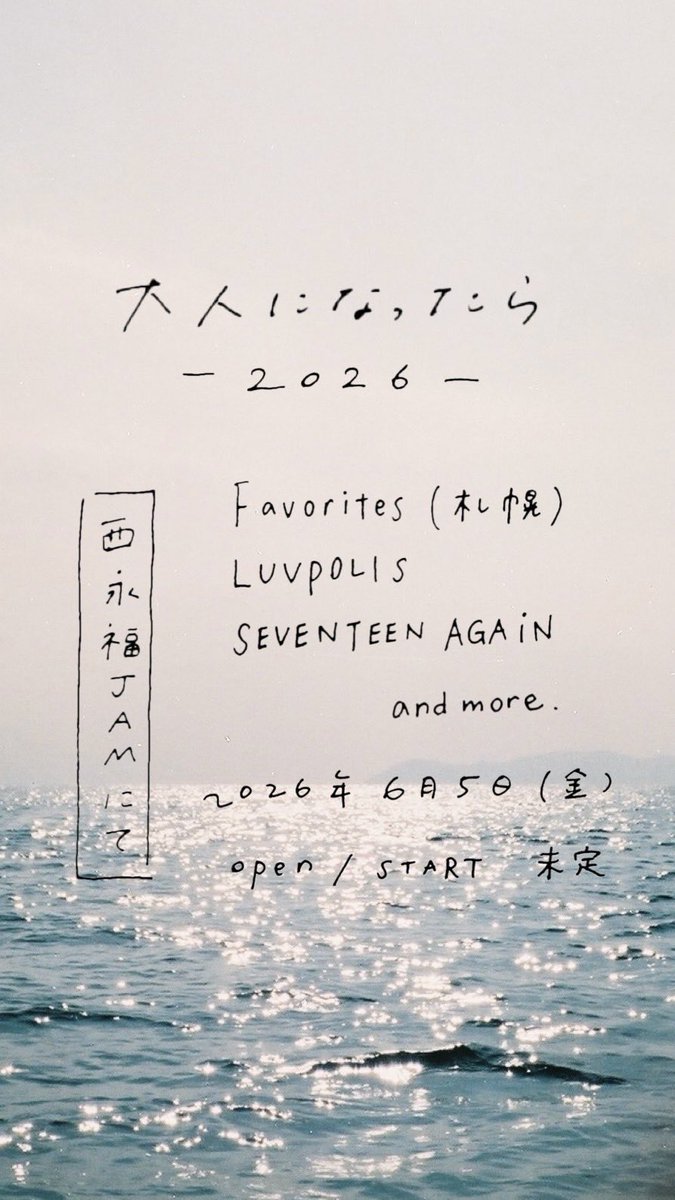 大人になったら
― 2026 ―
Favorites (札幌)
LUVPOLIS
SEVENTEEN AGAiN
and more.
西永福JAMにて
2026年 6月5日(金)
open / START 未定